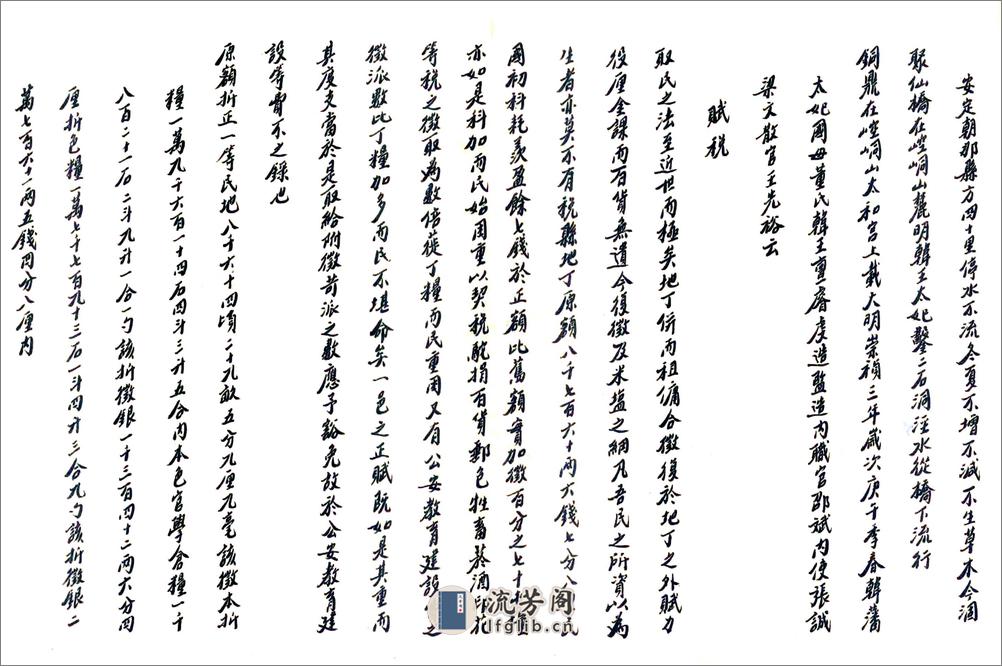 安定朝那縣方四十里停水不流冬夏不增不減不生草木今涸
聚仙橋在崆峒山麓明韓王太妃鑿二石洞涇水從橋下流行
銅鼎在崆峒山太和宮上載大明崇禎三年歲次庚午季春韓藩
太妃國母董氏韓王重睿虔造監造內職官邵斌內使張誠
梁文散官王先裕云
賦稅
取民之法至近世而極矣地丁併而租傭合徵復於地丁之外賦力
役厘金課而百貨無遺今復徵及米塩之綱凡吾民之所資以為
生者亦莫不有稅縣地丁原額八千七百六十兩六錢七分八 民
國初科耗羨盈餘七錢於正額比舊額實加徵百分之七十 糧
亦如是科加而民始困重以契稅駝捐百貨郵包牲畜菸酒印花
等稅之徵取為數倍蓰丁糧而民重困又有公安教育建設 之
徵派數比丁糧加多而民不堪命矣一邑之正賦既如是其重而
其度支當於是取給附徵苛派之數應予豁免故於公安教育建
設等費不之錄也
原額折正一等民地八千六十四頃二十九畝五分九厘九毫該徵本折
糧一萬九千六百一十四石四斗三升五合內本色官學倉糧一千
八百二十一石二斗九升一合一勺該折徵銀一千三百四十二兩六分四
厘折色糧一萬七千七百九十三石一斗四升三合九勺該折徵銀二
萬七百六十一兩五錢四分八厘內
流芳閣
lfglib.cn